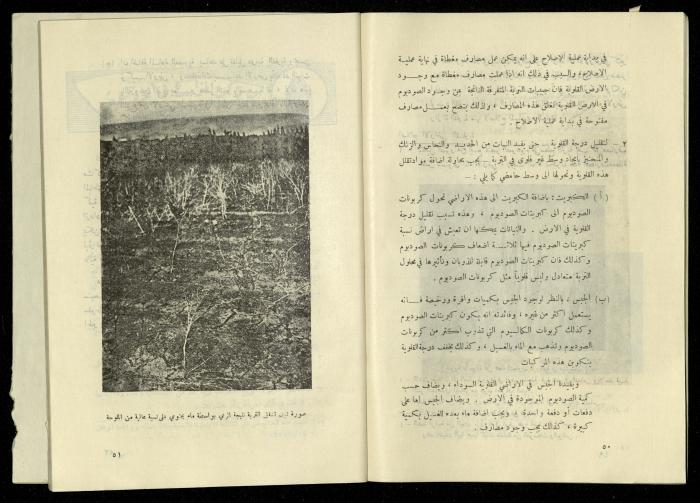 في بداية عملية الاصلاح على انه يمكن عمل مصارف مغطاة في نهاية عملية
الاصلاح والسبب في ذلك انه اذا عملت مصارف مغطاة مع وجود
الارض القلوية فان حبيبات التربة المتفرقة الناتجة عن وجود الصوديوم
في الارض القلوية تغلق هذه المصارف ، ولذلك ينصح بعمل مصارف
مفتوحة في بداية عملية الاصلاح .
٢ – لتقليل درجة القلوية – حتى يفيد النبات من الحديد والنحاس والزنك
والمنجنيز بايجاد وسط غير قلوي في التربة – يجب محاولة اضافة مواد تقلل
هذه القلوية وتحولها الى وسط حامضي كما يلي : –
( أ ) الكبريت : باضافة الكبريت الى هذه الاراضي تحول كربونات
الصوديوم الى كبريتات الصوديوم ، وهذه تسبب تقليل درجة
القلوية في الارض . والنباتات يمكنها ان تعيش في اراض نسبة
كبريتات الصوديوم فيها ثلاثة اضعاف كربونات الصوديوم
وكذلك فان كبريتات الصوديوم قابلة للذوبان وتأثيرها في محلول
التربة متعادل وليس قلوياً مثل كربونات الصوديوم .
(ب) الجبس ، بالنظر لوجود الجبس بكميات وافرة ورخيصة فانه
يستعمل اكثر من غيره ، وفائدته انه يتكون كبريتات الصوديوم
وكذلك كربونات الكالسيوم التي تذوب اكثر من كربونات
الصوديوم وتذهب مع الماء بالغسيل ، وكذلك تخفف درجة القلوية
بتكوين هذه المركبات
ويفيدنا الجبس في الاراضي القلوية السوداء ، ويضاف حسب
كمية الصوديوم الموجودة في الارض . ويضاف الجبس اما على
دفعات أو دفعة واحدة ، ويجب اضافة ماء بعده للغسيل بكمية
كبيرة ، كذلك يجب وجود مصارف .
٥٠
صورة تبين تملح التربة نتيجة الري بواسطة ماء يحتوي على نسبة عالية من الملوحة
٥١